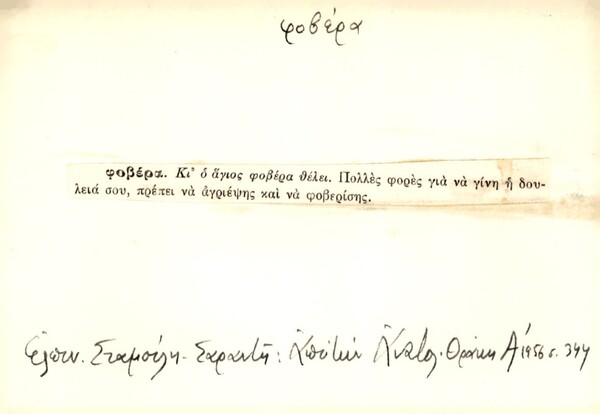 φοβέρα
φοβέρα. Κι' ὁ ἅγιος φοβέρα θέλει. Πολλὲς φορὲς γιὰ νὰ γίνη ἡ δου-
λειά σου, πρέπει νὰ ἀγριέψης καὶ νὰ φοβερίσης.
Ἐλπιν. Σταμούλη - Σαραντῆ: Ἀπὸ τὴν Ἀνατολ. Θράκη Α' 1956 σ. 344